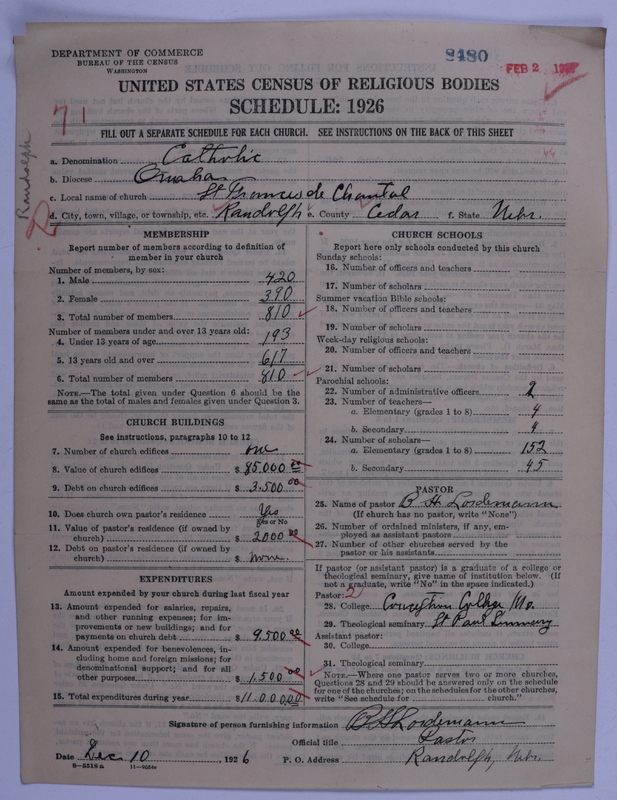 DEPARTMENT OF COMMERCE
BUREAU OF THE CENSUS
WASHINGTON
8480
FEB 2
UNITED STATES CENSUS OF RELIGIOUS BODIES
SCHEDULE: 1926
71
FILL OUT A SEPARATE SCHEDULE FOR EACH CHURCH. SEE INSTRUCTIONS ON THE BACK OF THIS SHEET
Randolph
a. Denomination Catholic
b. Diocese Omaha
c. Local name of church St Frances de Chantal
d. City, town, village, or township, etc. Randolph e. County Cedar f. State Nebr.
MEMBERSHIP
Report number of members according to definition of
member in your church
Number of members, by sex:
1. Male 420
2. Female 390
3. Total number of members 810
Number of members under and over 13 years old:
4. Under 13 years of age 193
5. 13 years old and over 617
6. Total number of members 810
NOTE.—The total given under Question 6 should be the
same as the total of males and females given under Question 3.
CHURCH BUILDINGS
See instructions, paragraphs 10 to 12
7. Number of church edifices one
8. Value of church edifices $ 85.000 00
9. Debt on church edifices $ 3.500 00
10. Does church own pastor's residence? Yes
Yes or No
11. Value of pastor's residence (if owned by
church) $ 2000 00
12. Debt on pastor's residence (if owned by
church) $ none.
EXPENDITURES
Amount expended by your church during last fiscal year
13. Amount expended for salaries, repairs,
and other running expenses; for im-
provements or new buildings; and for
payments on church debt $ 9.500 00
14. Amount expended for benevolences, in-
cluding home and foreign missions; for
denominational support; and for all
other purposes $ 1.500 00
15. Total expenditures during year $ 11.000.00
CHURCH SCHOOLS
Report here only schools conducted by this church
Sunday schools:
16. Number of officers and teachers
17. Number of scholars
Summer vacation Bible schools:
18. Number of officers and teachers
19. Number of scholars
Week-day religious schools:
20. Number of officers and teachers
21. Number of scholars
Parochial schools:
22. Number of administrative officers 2
23. Number of teachers—
a. Elementary (grades 1 to 8) 4
b. Secondary 4
24. Number of scholars—
a. Elementary (grades 1 to 8) 152
b. Secondary 45
PASTOR
25. Name of pastor B H Lordemann
(If church has no pastor, write "None")
26. Number of ordained ministers, if any, em-
ployed as assistant pastors
27. Number of other churches served by the
pastor or his assistants
If pastor (or assistant pastor) is a graduate of a college or
theological seminary, give name of institution below. (If
not a graduate, write "No" in the space indicated.)
Pastor: 2
28. College Conception College Mo.
29. Theological seminary St Paul Seminary
Assistant pastor:
30. College
31. Theological seminary
NOTE.—Where one pastor serves two or more churches,
Questions 28 and 29 should be answered only on the schedule
for one of the churches; on the schedules for the other churches,
write "See schedule for church."
Signature of person furnishing information B H Lordemann
Official title Pastor
Date Dec 10, 1926 P. O. Address Randolph, Nebr.
8—5518a 11—9024a